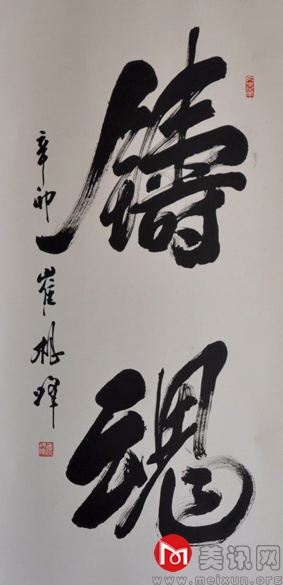 鑄魂
辛卯 崔根輝
美讯网
www.meixun.org